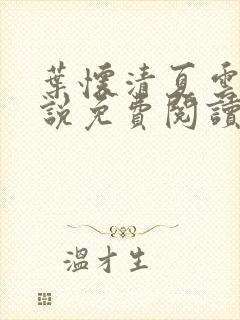 葉懷清夏雲
說免費閱讀
溫才生